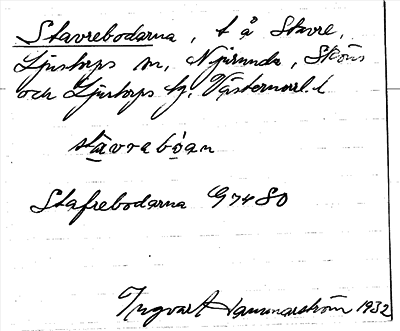 Stavrebodarna, t å Stavre,
Ljustorps sn, Njurunda, Sköns
och Ljustorps tg, Västernorrl. l
stavrabóan
Stafrebodarna G7480
Ingvar Hammarström 1932